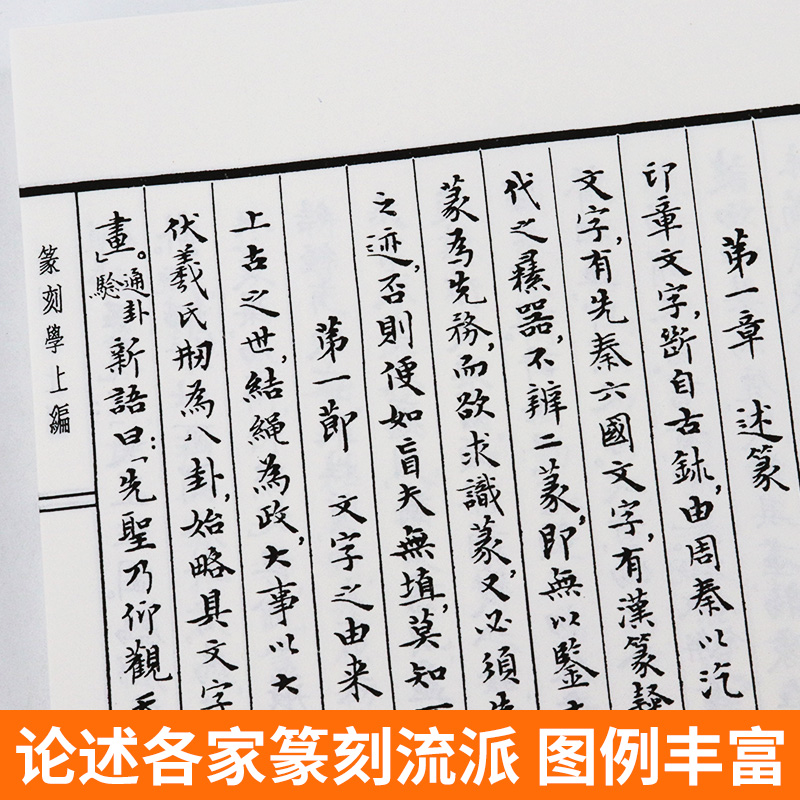 第一章　述篆
印章文字，斷自古鉨，由周秦以汔
文字，有先秦六國文字，有漢篆
代之彞器，不辨二篆，即無以鑒
篆為先務，而欲求識篆，又必須
之迹，否則便如盲夫無埴，莫知
第一節　文字之由来
上古之世，結繩為政，大事以大
伏羲氏剏為八卦，始略具文字
畫。」通卦驗新語曰：「先聖乃仰觀
篆刻學上編
论述各家篆刻流派 图例丰富